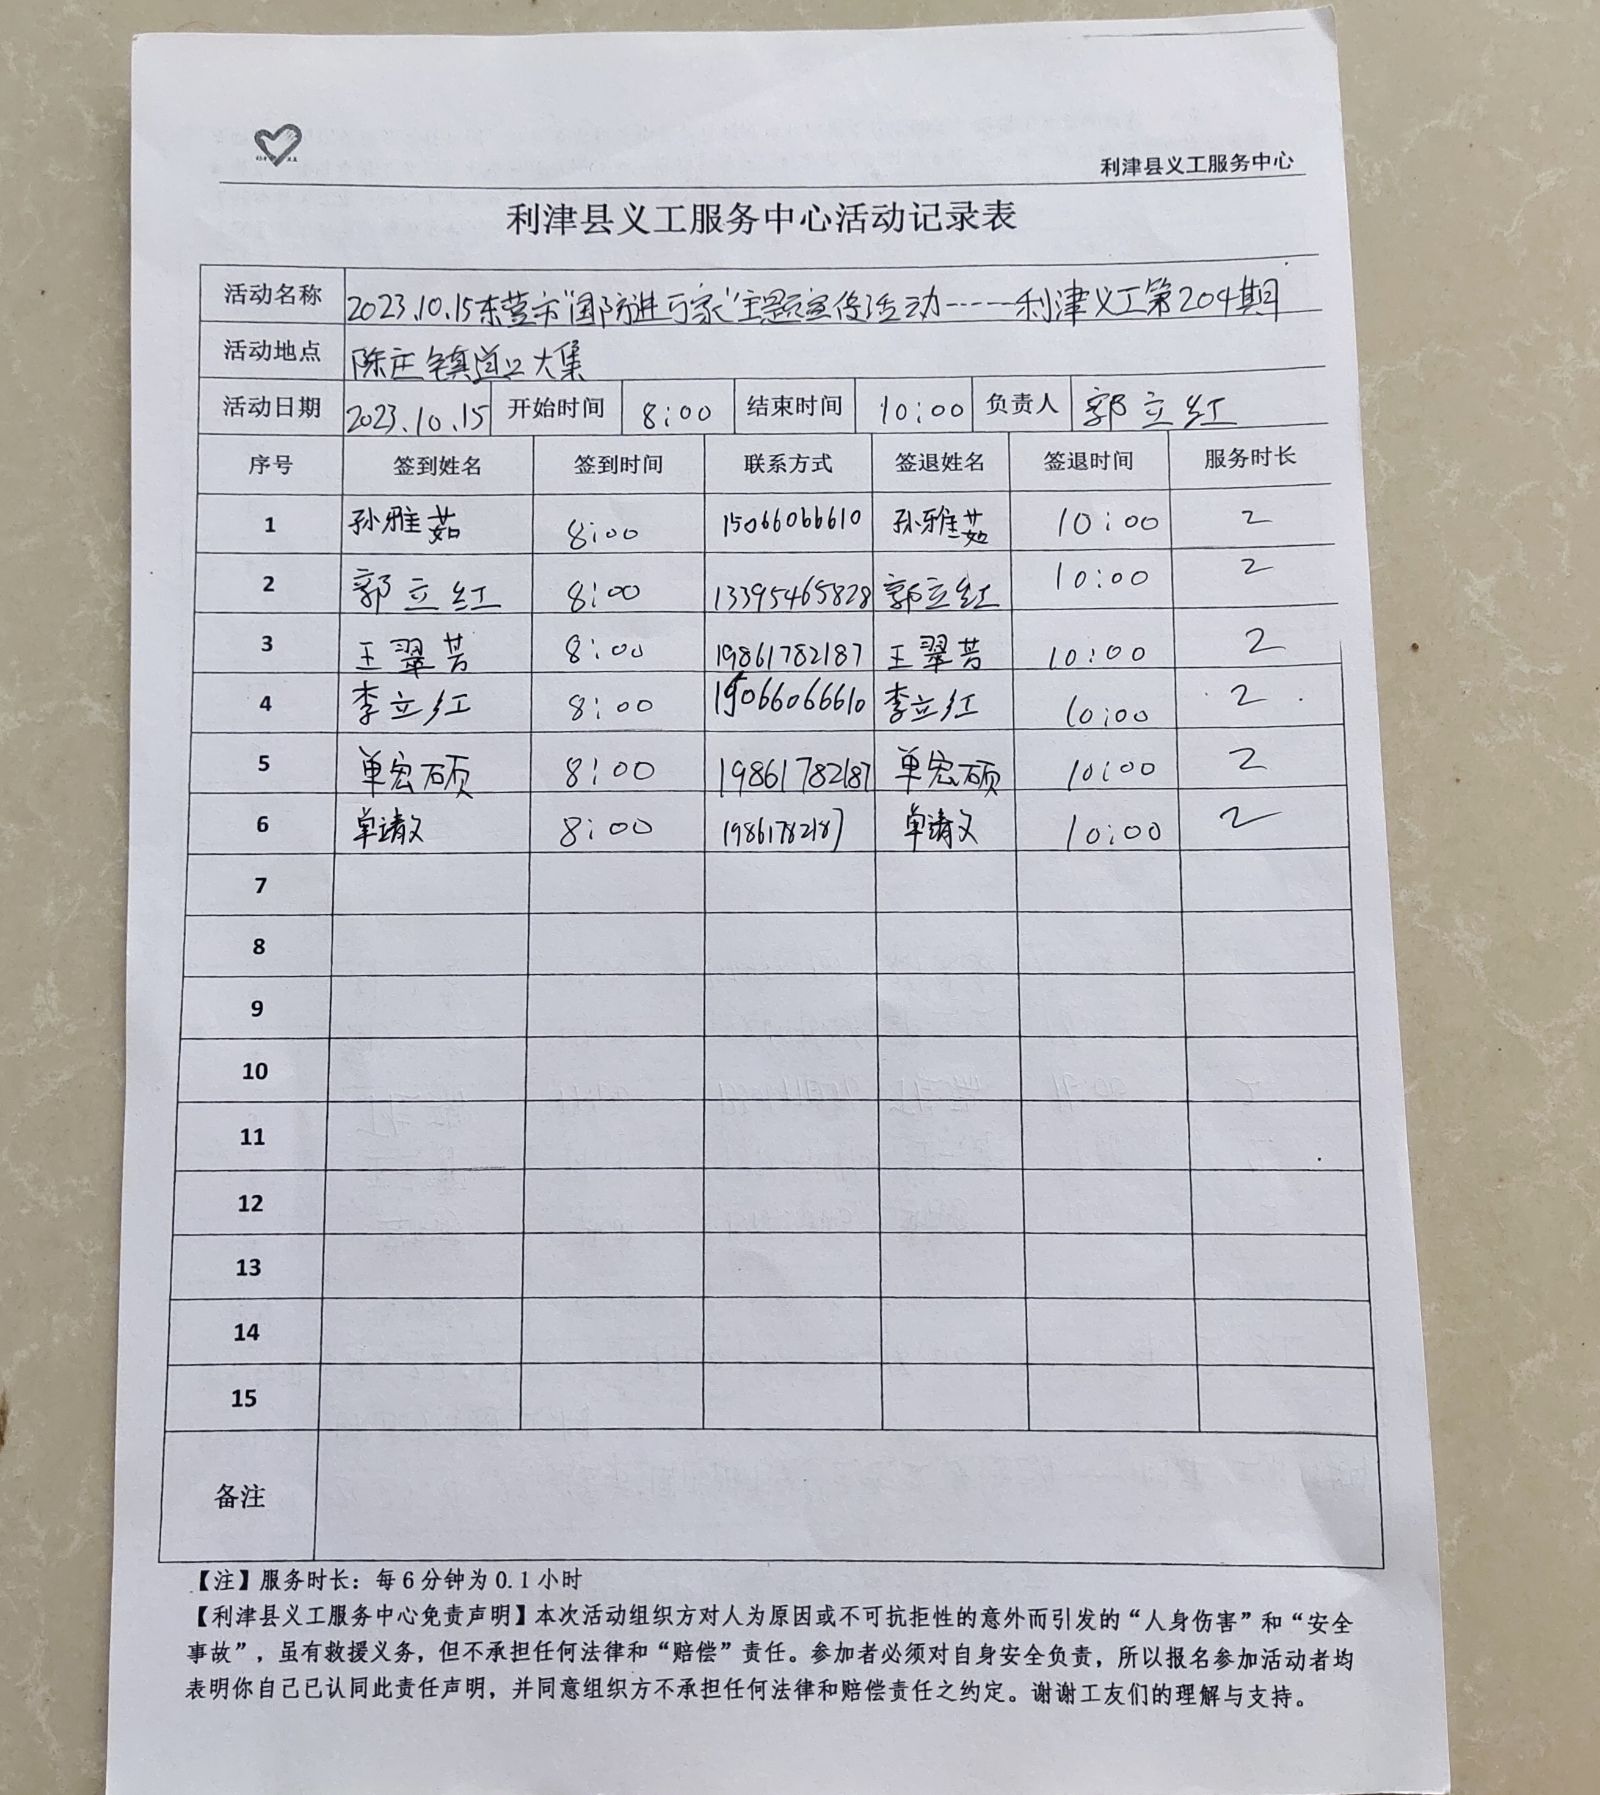 利津县义工服务中心
利津县义工服务中心活动记录表
活动名称 2023.10.15东营市"国防进万家"主题宣传活动-----利津义工第204期
活动地点 陈庄镇道口大集
活动日期 2023.10.15 开始时间 8:00 结束时间 10:00 负责人 郭立红
序号 签到姓名 签到时间 联系方式 签退姓名 签退时间 服务时长
1 孙雅茹 8:00 15066066610 孙雅茹 10:00 2
2 郭立红 8:00 13395465828 郭立红 10:00 2
3 王翠芳 8:00 19861782187 王翠芳 10:00 2
4 李立红 8:00 15066066610 李立红 10:00 2
5 单宏硕 8:00 19861782187 单宏硕 10:00 2
6 单靖文 8:00 19861782187 单靖文 10:00 2
7
8
9
10
11
12
13
14
15
备注
【注】服务时长：每6分钟为0.1小时
【利津县义工服务中心免责声明】本次活动组织方对人为原因或不可抗拒性的意外而引发的“人身伤害”和“安全
事故”，虽有救援义务，但不承担任何法律和“赔偿”责任。参加者必须对自身安全负责，所以报名参加活动者均
表明你自己已认同此责任声明，并同意组织方不承担任何法律和赔偿责任之约定。谢谢工友们的理解与支持。